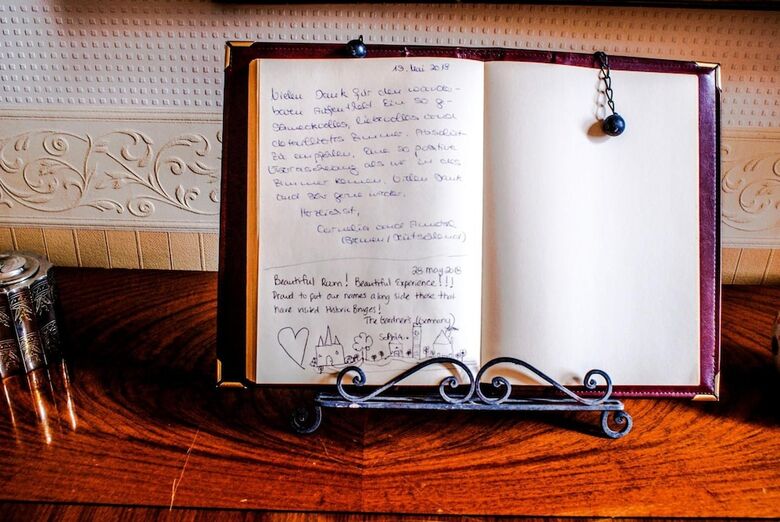 19. Mai 2018
Vielen Dank für den wunder-
baren Aufenthalt. Ein so g-
schmackvolles, liebevolles und
detailliertes Zimmer. Absolut
zu empfehlen. Eine so positive
Überraschung als wir in das
Zimmer kamen. Vielen Dank
und sehr gerne wieder.
Herzlichst,
Cornelia und
(Bremen/Deutschland)
28 may 2018
Beautiful Room! Beautiful Experience!!!
Proud to put our names along side those that
have visited Historic Bruges!
The Gardner's (Germany)